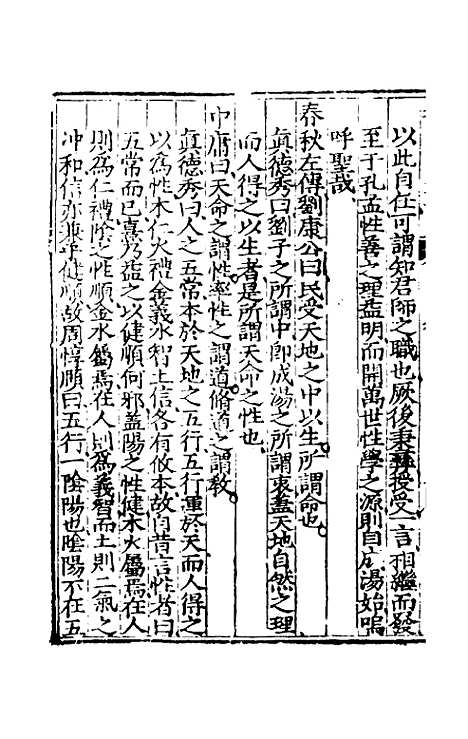 以此自任可謂知君師之職也厥後秉彝授受一言相繼而發
至于孔孟性善之理益明而開萬世性學之源則自成湯始嗚
呼聖哉
春秋左傳劉康公曰民受天地之中以生所謂命也
真德秀曰劉子之所謂中即成湯之所謂衷蓋天地自然之理
而人得之以生者是所謂天命之性也
中庸曰天命之謂性率性之謂道脩道之謂敎
真德秀曰人之五常本於天地之五行五行運於天而人得之
以為性木仁火禮金義水智土信各有攸本故自昔言性者曰
五常而已熹乃益之以健順何邪蓋陽之性健木火屬焉在人
則為仁禮隂之性順金水屬焉在人則為義智而土則二氣之
冲和信亦兼乎健順故周惇頤曰五行一隂陽也隂陽不在五